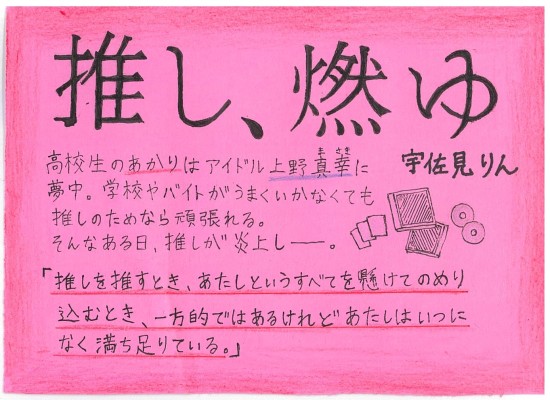 推し、燃ゆ
宇佐見りん
高校生のあかりはアイドル上野真幸に
まさき
夢中。学校やバイトがうまくいかなくても
推しのためなら頑張れる。
そんなある日、推しが炎上し――。
「推しを推すとき、あたしというすべてを懸けてのめり
込むとき、一方的ではあるけれどあたしはいつに
なく満ち足りている。」